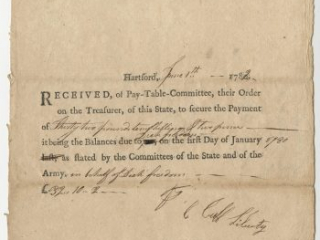 Hartford, June 1st 1782
RECEIVED, of Pay-Table-Committee, their Order
on the Treasurer, of this State, to secure the Payment
of Thirty two pounds ten shillings & two pence
it being the Balances due on the first Day of January 1780
last, as stated by the Committees of the State and of the
Army, on behalf of freedom
£32.10.2
Liberty